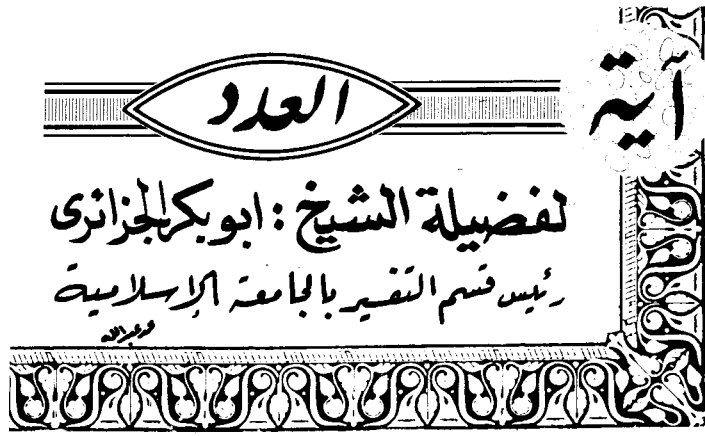 آية
العدد
لفضيلة الشيخ : ابو بكر الجزائرى
رئيس قسم التفسير بالجامعة الإسلامية